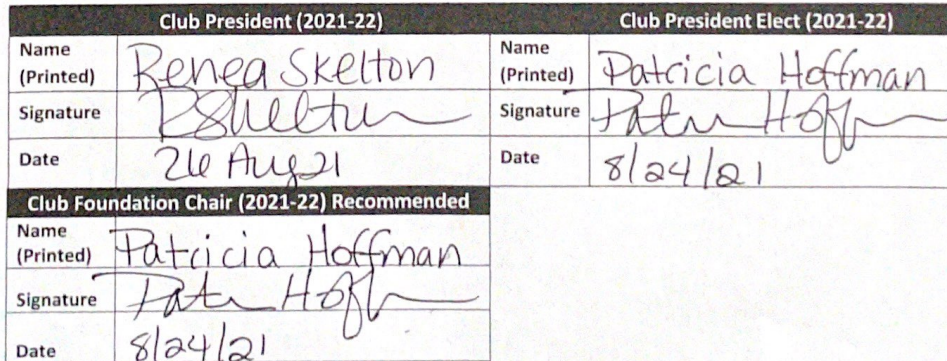 Club President (2021-22)
Name
(Printed) Renea Skelton
Signature RSkelton
Date 26 Aug 21
Club President Elect (2021-22)
Name
(Printed) Patricia Hoffman
Signature
Date 8/24/21
Club Foundation Chair (2021-22) Recommended
Name
(Printed) Patricia Hoffman
Signature
Date 8/24/21